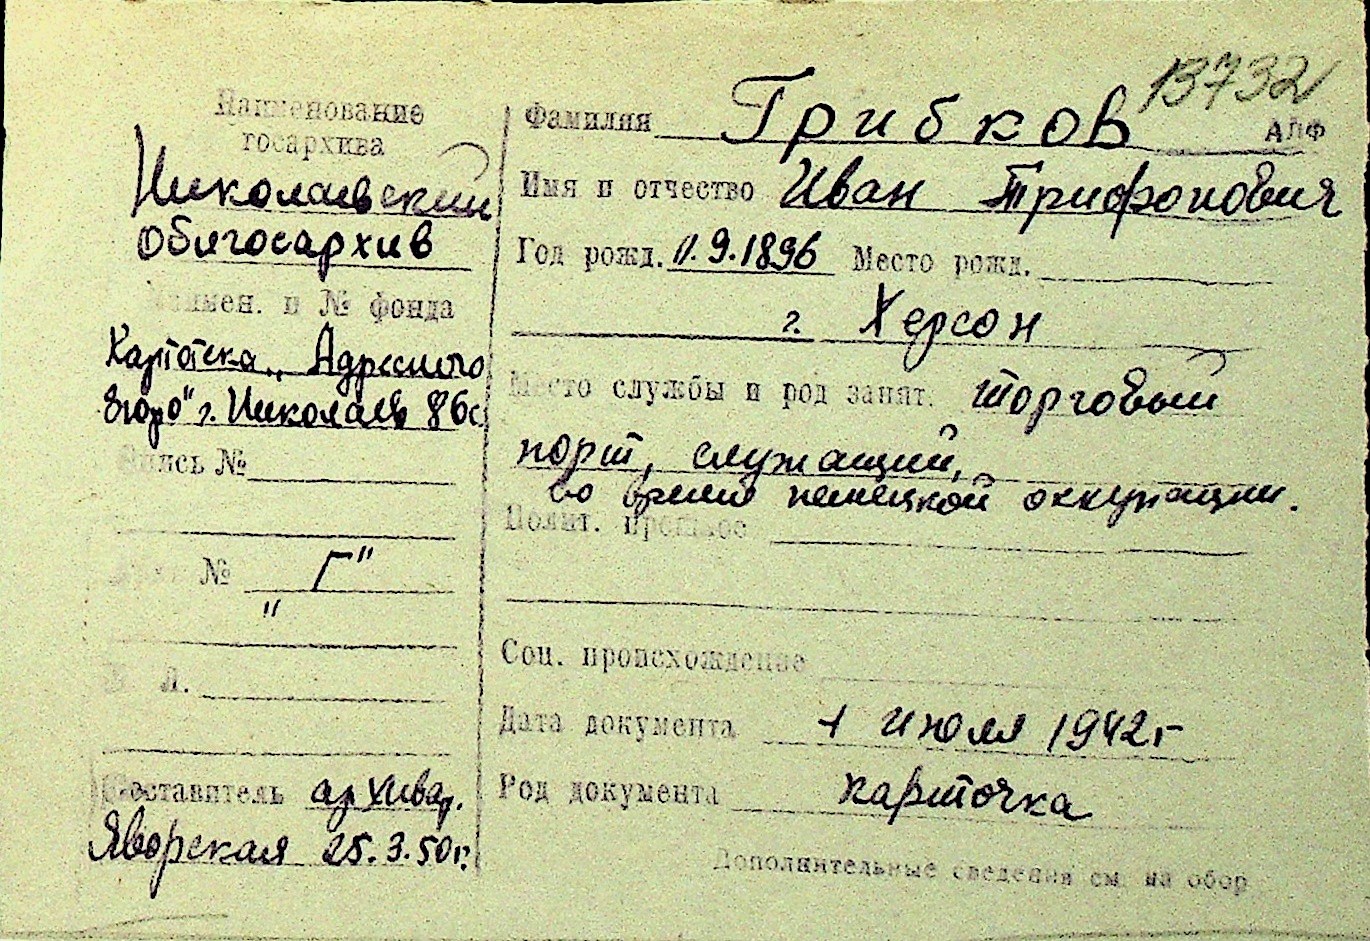 13732
Наименование
госархива
Николаевский
облгосархив
Наимен. и № фонда
Картотека „Адресного
бюро" г. Николаев 86с
Опись №
№ „Г"
Л.
Составитель архивар.
Яворская 25.3.50г.
Фамилия Грибков
АЛФ
Имя и отчество Иван Трифонович
Год рожд. 11.9.1896 Место рожд.
г. Херсон
Место службы и род занят. торговый
порт, служащий,
во время немецкой оккупации.
Полит. прошлое
Соц. происхождение
Дата документа 1 июля 1942г
Род документа карточка
Дополнительные сведения см на обор